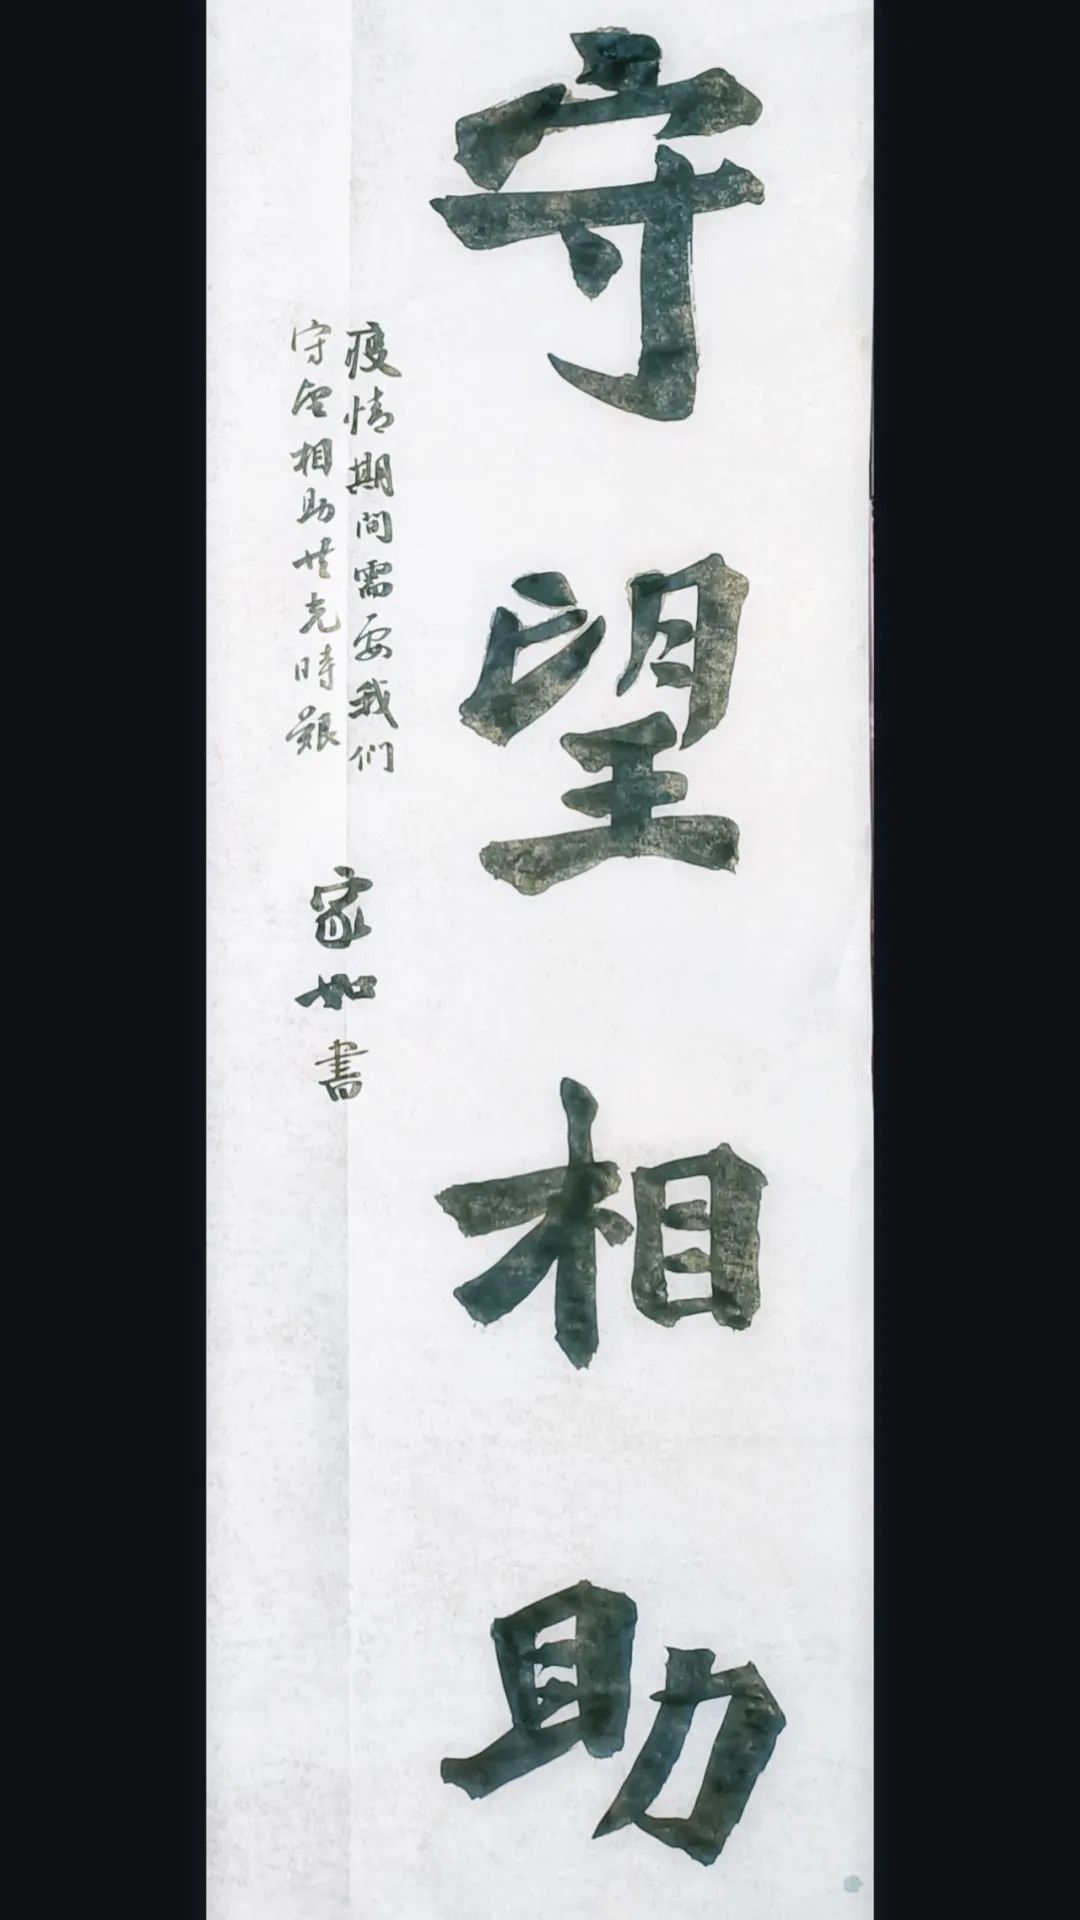 守望相助
疫情期间需要我们
守望相助共克時艱
家如書